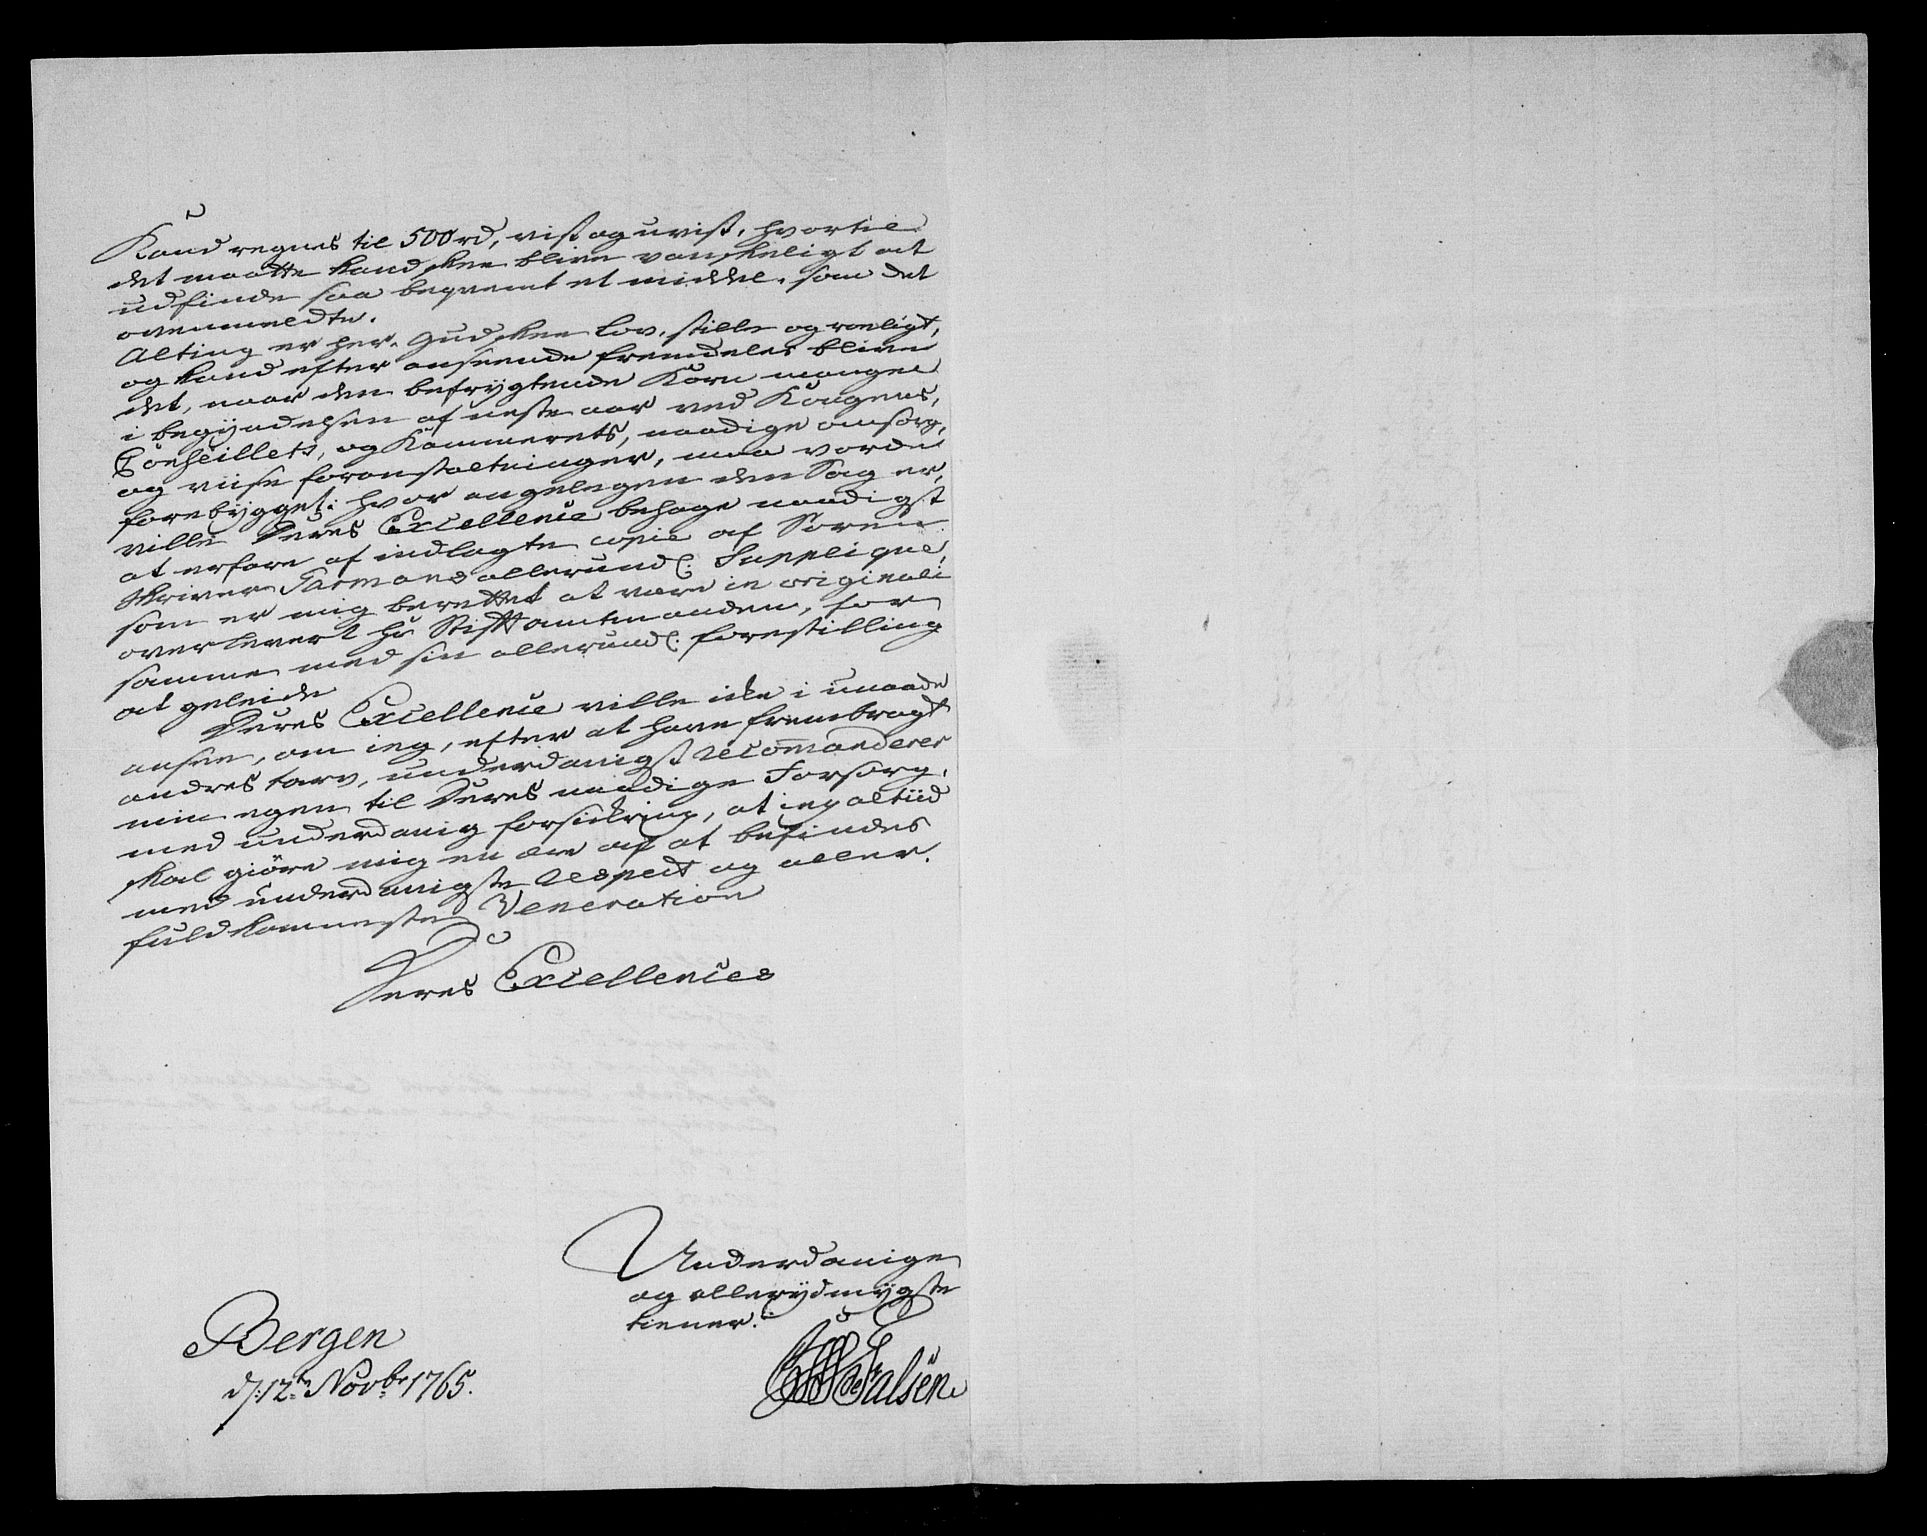 Kand regnes til 500rd, vist og uvist, hvortil
det maatte kand skee blive vanskeligt at
udfinde saa beqvemt et middel, som det
ovenmeldte.
Alting er her, Gud skee Lov, stille og roeligt,
og kand efter anseende fremdeles blive
det, naar den befrygtende Korn mangel
i begÿndelsen af neste aar ved Kongens,
Conseillets, og Kammerets, naadige omsorg,
og viise foranstaltninger, maa vorde
forebÿgget: hvor angelegen den Sag er,
ville Deres Excellence behage naadigst
at erfare af indlagte copie af Soren
skriver Garmans allerund: Supplique,
som er mig berettet at være in originali
overlevert hr Stiftamtmanden, for
samme med sin allerund: forestilling
at geleide
Deres Excellence ville ikke i unaade
ansee, om ieg, efter at have frembragt
andres tarv, underdanigst recommanderer
min egen til Deres naadige Forsorg,
med underdanig forsikring, at ieg altiid
skal giöre mig en ære af at befindes
med underdanigste Respect og aller-
fuldkomneste Veneration
Deres Excellences
Underdanige
og allerÿdmÿgste
tiener.
Bergen
d: 12te Novbr 1765.
de Falsen